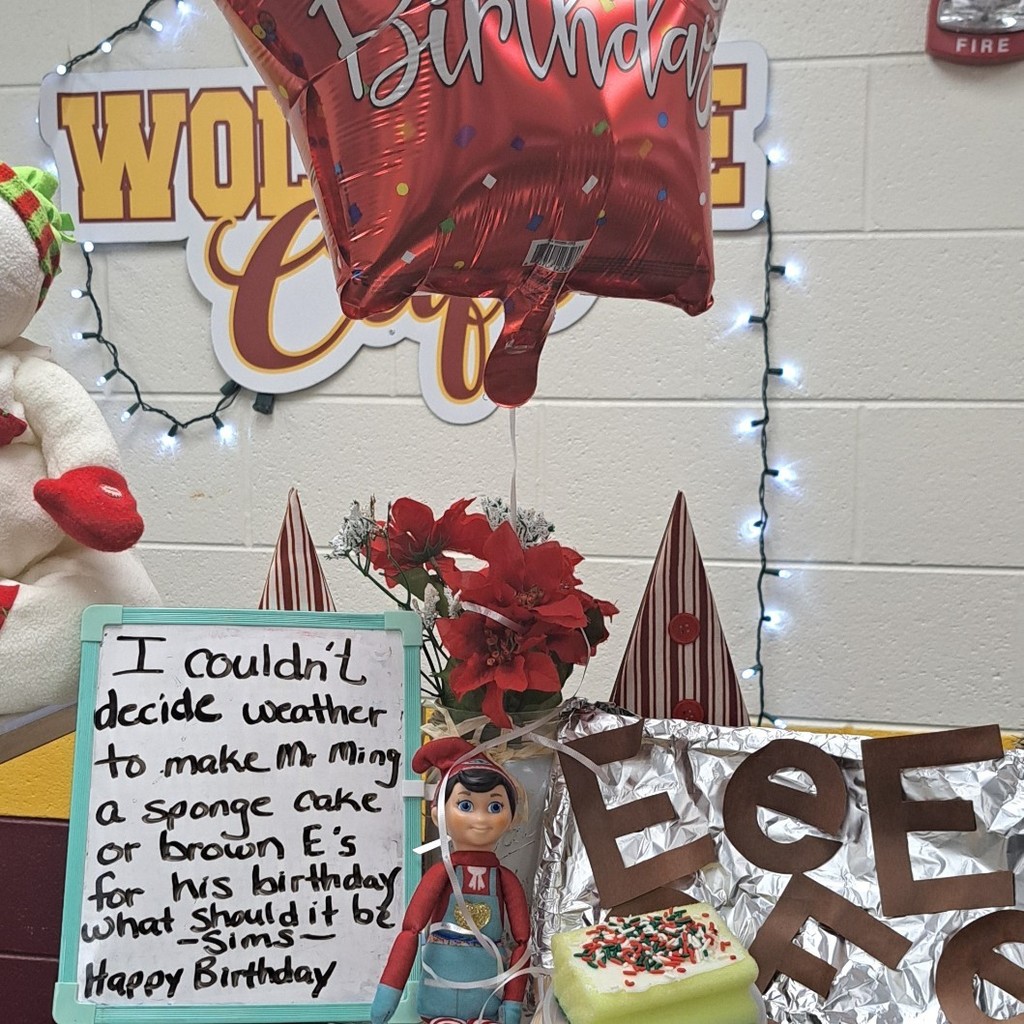 Birthday
FIRE
Cafe
I couldn't
decide weather
to make Mr Ming
a sponge cake
or brown E's
for his birthday
what should it be
-Sims-
Happy Birthday
E e E
E e